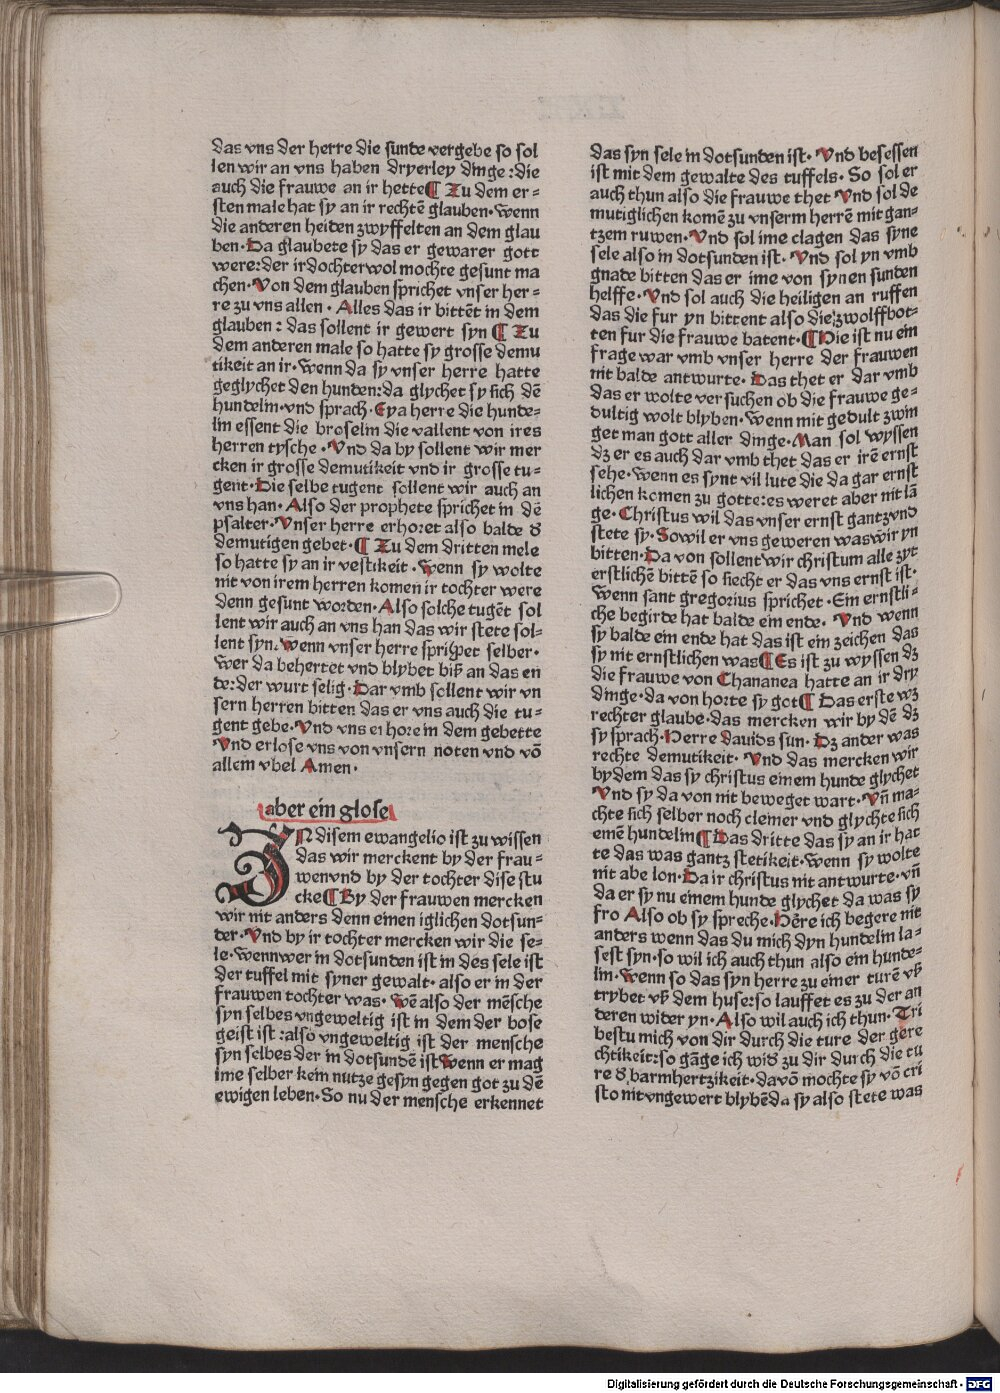 das vns der herre die sunde vergebe so sol
len wir an vns haben dryerley dinge : die
auch die frauwe an ir hette ¶ Zu dem er=
sten male hat sy an ir rechtē glauben · wenn
die anderen heiden zwyffelten an dem glau
ben · Da glaubete sy das er gewarer gott
were : der ir dochter wol mochte gesunt ma
chen · Von dem glauben sprichet vnser her=
re zu vns allen · Alles das ir bittēt in dem
glauben : das sollent ir gewert syn ¶ Zu
dem anderen male so hatte sy grosse demu
tikeit an ir · wenn da sy vnser herre hatte
geglychet den hunden : da glychet sy sich dē
hundelin · vnd sprach · Eya herre die hunde=
lin essent die broselin die vallent von ires
herren tysche · Vnd da by sollent wir mer
cken ir grosse demutikeit vnd ir grosse tu=
gent · Die selbe tugent sollent wir auch an
vns han · Also der prophete sprichet in dē
psalter · Vnser herre erhoret also balde d
demutigen gebet · ¶ Zu dem dritten mele
so hatte sy an ir vestikeit · Wenn sy wolte
nit von irem herren komen ir tochter were
denn gesunt worden · Also solche tugēt sol
lent wir auch an vns han das wir stete sol=
lent syn · Wenn vnser herre sprichet selber ·
wer da behertet vnd blybet biß an das en
de : der wurt selig · Dar vmb sollent wir vn
sern herren bitten das er vns auch die tu=
gent gebe · Vnd vns erhore in dem gebette
Vnd erlose vns von vnsern noten vnd vō
allem vbel Amen ·
aber ein glose
IN disem ewangelio ist zu wissen
das wir merckent by der frau=
wen vnd by der tochter dise stu
cke ¶ By der frauwen mercken
wir nit anders denn einen iglichen dotsun=
der · Vnd by ir tochter mercken wir die se=
le · wenn wer in dotsunden ist in des sele ist
der tuffel mit syner gewalt · also er in der
frauwen tochter was · Wē also der mēsche
syn selbes vngeweltig ist in dem der bose
geist ist : also vngeweltig ist der mensche
syn selbes der in dotsundē ist Wenn er mag
ime selber kein nutze gesyn gegen got zu dē
ewigen leben · So nu der mensche erkennet
das syn sele in dotsunden ist · Vnd besessen
ist mit dem gewalte des tuffels · So sol er
auch thun also die frauwe thet Vnd sol de
mutiglichen komē zu vnserm herrē mit gan=
tzem ruwen · Vnd sol ime clagen das syne
sele also in dotsunden ist · Vnd sol yn vmb
gnade bitten das er ime von synen sunden
helffe · Vnd sol auch die heiligen an ruffen
das die fur yn bittent also die zwolffbot=
ten fur die frauwe batent · ¶ Hie ist nu ein
frage war vmb vnser herre der frauwen
nit balde antwurte · Das thet er dar vmb
das er wolte versuchen ob die frauwe ge=
dultig wolt blyben · Wenn mit gedult zwin
get man gott aller dinge · Man sol wyssen
dz er es auch dar vmb thet das er irē ernst
sehe · wenn es synt vil lute die da gar ernst
lichen komen zu gotte : es weret aber nit lā
ge · Christus wil das vnser ernst gantz vnd
stete sy · So wil er vns geweren was wir yn
bitten · Da von sollent wir christum alle zyt
erstlichē bittē so siecht er das vns ernst ist ·
Wenn sant gregorius sprichet · Ein ernstli=
che begirde hat balde ein ende · Vnd wenn
sy balde ein ende hat das ist ein zeichen das
sy nit ernstlichen was ¶ Es ist zu wyssen dz
die frauwe von Chananea hatte an ir dry
dinge · da von horte sy got ¶ Das erste wz
rechter glaube · das mercken wir by dē dz
sy sprach · Herre dauids sun · Dz ander was
rechte demutikeit · Vnd das mercken wir
by dem das sy christus einem hunde glychet
Vnd sy da von nit beweget wart · Vñ ma=
chte sich selber noch cleiner vnd glychte sich
emē hundelin ¶ Das dritte das sy an ir hat
te das was gantz stetikeit · Wenn sy wolte
nit abe lon · Da ir christus nit antwurte · vñ
da er sy nu einem hunde glychet da was sy
fro Also ob sy spreche · Hēre ich begere nit
anders wenn das du mich dyn hundelin la=
sest syn · so wil ich auch thun also ein hunde=
lin · Wenn so das syn herre zu einer turē vß
trybet vß dem huse : so lauffet es zu der an
deren wider yn · Also wil auch ich thun · Tri
bestu mich von dir durch die ture der gere
chtikeit : so gāge ich wid zu dir durch die tu
re d barmhertzikeit · davō mochte sy vō cri
sto nit vngewert blybē da sy also stete was
Digitalisierung gefördert durch die Deutsche Forschungsgemeinschaft - DFG